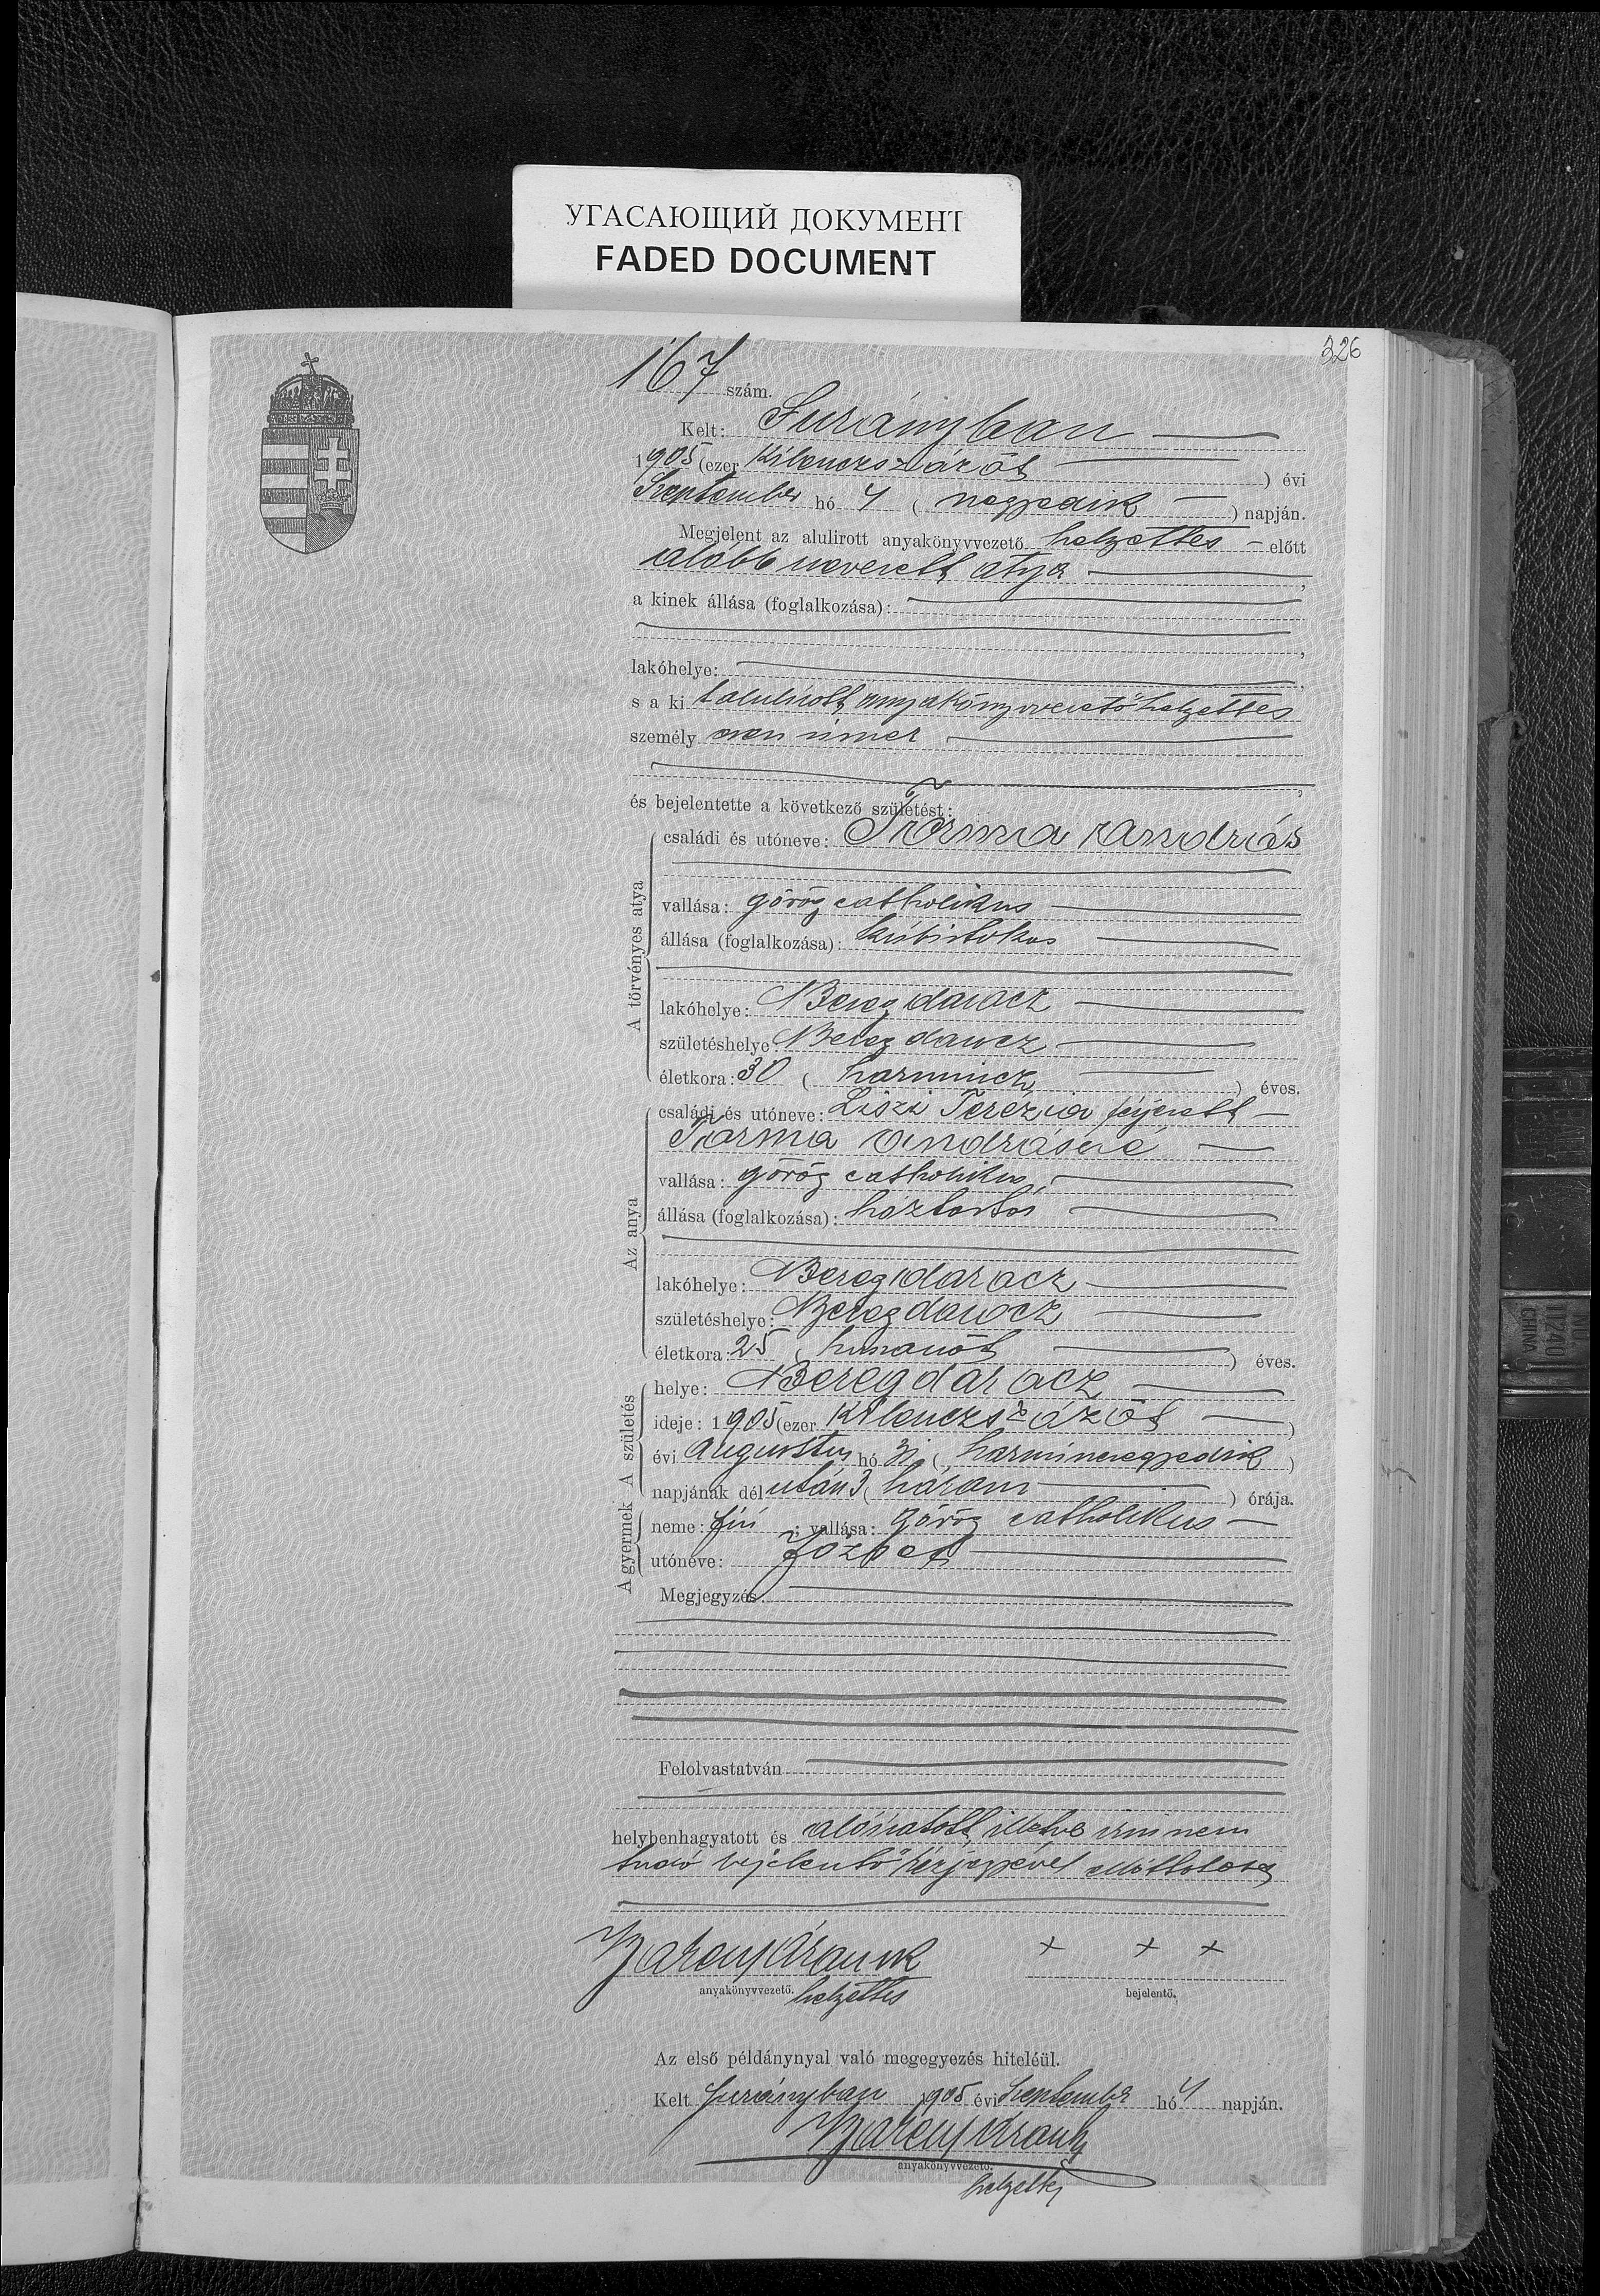 УГАСАЮЩИЙ ДОКУМЕНТ
FADED DOCUMENT
326
167 szám.
Kelt: Surányban
1905 (ezer kilenczszázöt ) évi
Szeptember hó 4 ( negyedik ) napján.
Megjelent az alulirott anyakönyvvezető helyettes előtt
alább nevezett atya ,
a kinek állása (foglalkozása):
,
lakóhelye: ,
s a ki t alulirott anyakönyvvezető helyettes
személy esen ismer
,
és bejelentette a következő születést:
A törvényes atya
családi és utóneve: Tizma András
vallása: görög catholikus
állása (foglalkozása): kisbirtokos
lakóhelye: Beregdarócz
születéshelye: Beregdarócz
életkora: 30 ( harmincz ) éves.
Az anya
családi és utóneve: Liszi Terézia férjezett
Andrásné
vallása: görög catholikus
állása (foglalkozása): háztartás
lakóhelye: Beregdarócz
születéshelye: Beregdarócz
életkora: 25 ( huszonöt ) éves.
A születés
helye: Beregdarócz
ideje: 1905 (ezer kilenczszázöt )
évi Augusztus hó 31 ( harminczegyedik )
napjának dél után 3 ( három ) órája.
A gyermek
neme: fiú ; vallása: görög catholikus
utóneve: József
Megjegyzés:
Felolvastatván
helybenhagyatott és aláiratott, illetve irni nem
tudó bejelentő kézjegyével elláttatott
+ + +
anyakönyvvezető. helyettes
bejelentő.
Az első példánynyal való megegyezés hiteléül.
Kelt Surányban 1905 évi Szeptember hó 4 napján.
anyakönyvvezető.
helyettes